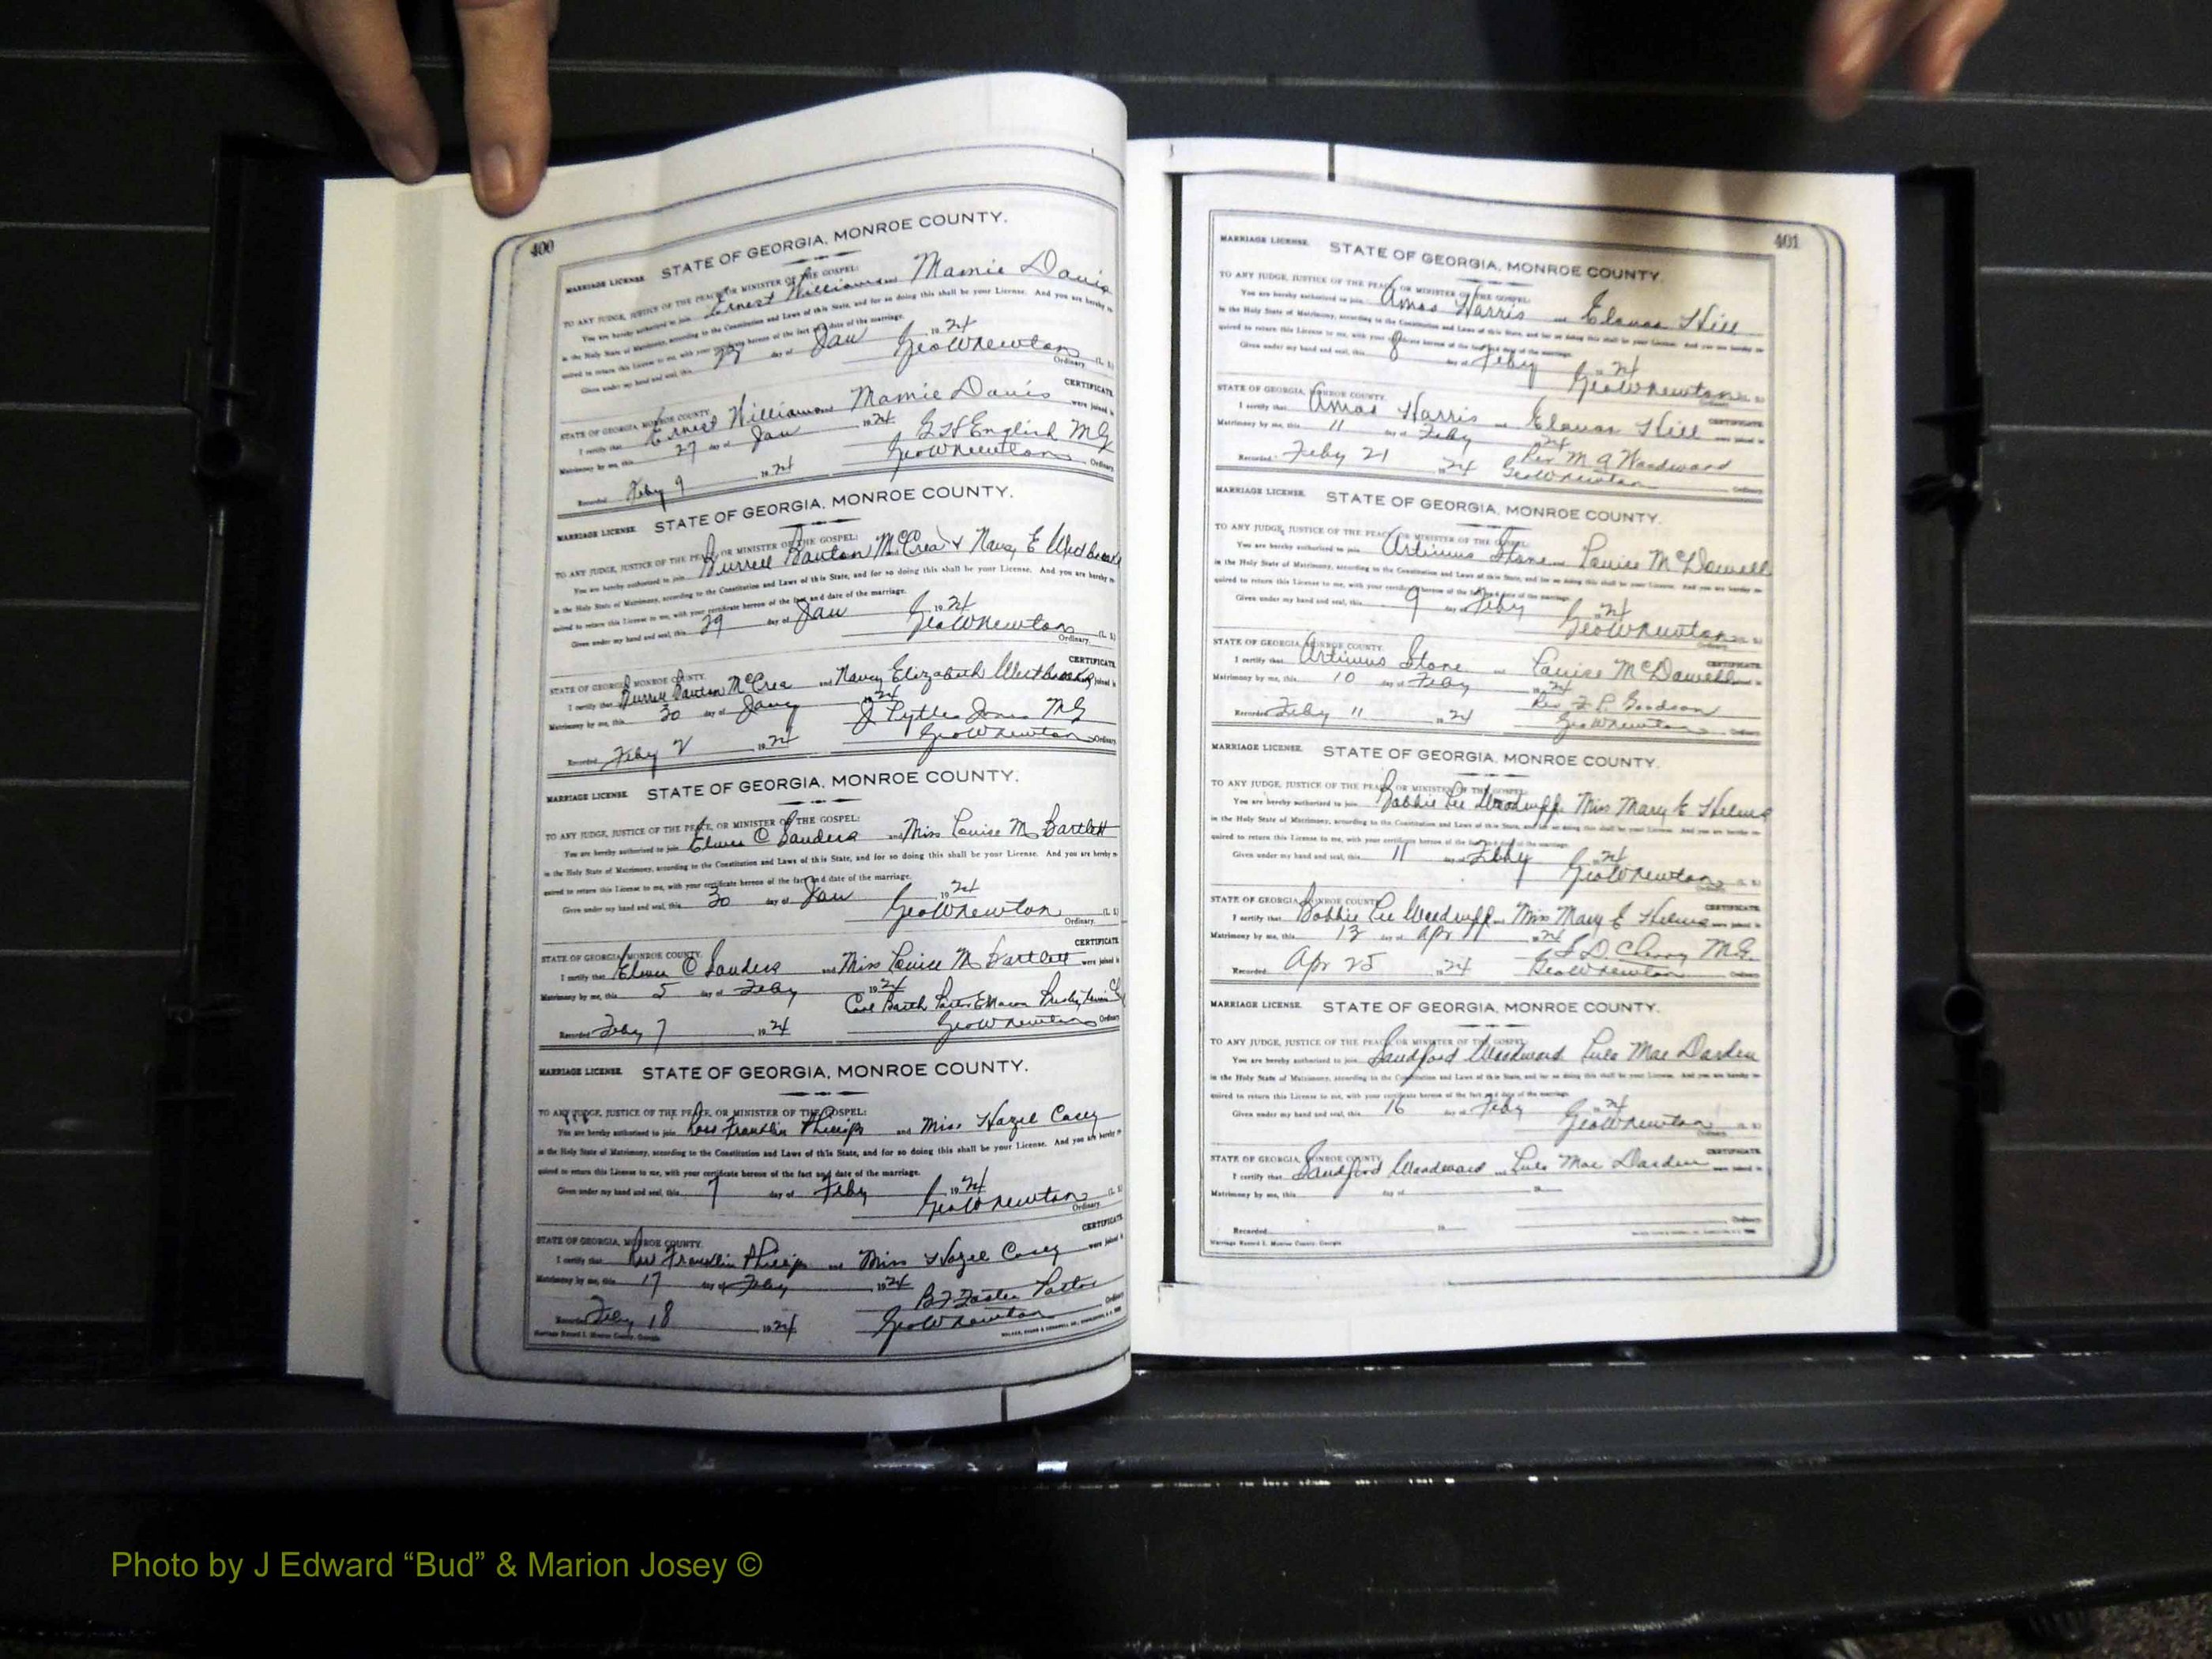 400
MARRIAGE LICENSE. STATE OF GEORGIA, MONROE COUNTY.
TO ANY JUDGE, JUSTICE OF THE PEACE, OR MINISTER OF THE GOSPEL:
You are hereby authorized to join Ernest Williams and Mamie Davis
in the Holy State of Matrimony, according to the Constitution and Laws of this State, and for so doing this shall be your License. And you are hereby re-
quired to return this License to me, with your certificate hereon of the fact and date of the marriage.
Given under my hand and seal, this day of Jan 1924
Geo W Newton (L. S.)
Ordinary.
STATE OF GEORGIA, MONROE COUNTY. CERTIFICATE
I certify that Ernest Williams and Mamie Davis were joined in
Matrimony by me, this 27 day of Jan 1924
G H English MG
Recorded Feby 9 1924 Geo W Newton Ordinary
MARRIAGE LICENSE. STATE OF GEORGIA, MONROE COUNTY.
TO ANY JUDGE, JUSTICE OF THE PEACE, OR MINISTER OF THE GOSPEL:
You are hereby authorized to join Burrell McCrea & E
in the Holy State of Matrimony, according to the Constitution and Laws of this State, and for so doing this shall be your License. And you are hereby re-
quired to return this License to me, with your certificate hereon of the fact and date of the marriage.
Given under my hand and seal, this 29 day of Jan 1924
Geo W Newton (L. S.)
Ordinary.
STATE OF GEORGIA, MONROE COUNTY. CERTIFICATE
I certify that Burrell McCrea and Nancy Elizabeth joined in
Matrimony by me, this 30 day of Jany 1924
J Jones MG
Recorded Feby 2 1924 Geo W Newton Ordinary
MARRIAGE LICENSE. STATE OF GEORGIA, MONROE COUNTY.
TO ANY JUDGE, JUSTICE OF THE PEACE, OR MINISTER OF THE GOSPEL:
You are hereby authorized to join Elmer O Sanders and Miss Louise M Bartlett
in the Holy State of Matrimony, according to the Constitution and Laws of this State, and for so doing this shall be your License. And you are hereby re-
quired to return this License to me, with your certificate hereon of the fact and date of the marriage.
Given under my hand and seal, this 30 day of Jan 1924
Geo W Newton (L. S.)
Ordinary.
STATE OF GEORGIA, MONROE COUNTY. CERTIFICATE
I certify that Elmer O Sanders and Miss Louise M Bartlett were joined in
Matrimony by me, this 5 day of Feby 1924
Macon
Recorded Feby 7 1924 Geo W Newton Ordinary
MARRIAGE LICENSE. STATE OF GEORGIA, MONROE COUNTY.
TO ANY JUDGE, JUSTICE OF THE PEACE, OR MINISTER OF THE GOSPEL:
You are hereby authorized to join Franklin Phillips and Miss Hazel Casey
in the Holy State of Matrimony, according to the Constitution and Laws of this State, and for so doing this shall be your License. And you are hereby re-
quired to return this License to me, with your certificate hereon of the fact and date of the marriage.
Given under my hand and seal, this 7 day of Feby 1924
Geo W Newton (L. S.)
Ordinary.
STATE OF GEORGIA, MONROE COUNTY. CERTIFICATE
I certify that Franklin Phillips and Miss Hazel Casey were joined in
Matrimony by me, this 17 day of Feby 1924
B F Foster Pastor
Recorded Feby 18 1924 Geo W Newton Ordinary
Marriage Record I. Monroe County, Georgia
401
MARRIAGE LICENSE. STATE OF GEORGIA, MONROE COUNTY.
TO ANY JUDGE, JUSTICE OF THE PEACE, OR MINISTER OF THE GOSPEL:
You are hereby authorized to join Amos Harris and Hill
in the Holy State of Matrimony, according to the Constitution and Laws of this State, and for so doing this shall be your License. And you are hereby re-
quired to return this License to me, with your certificate hereon of the fact and date of the marriage.
Given under my hand and seal, this 8 day of Feby 1924
Geo W Newton (L. S.)
Ordinary.
STATE OF GEORGIA, MONROE COUNTY. CERTIFICATE
I certify that Amos Harris and Hill were joined in
Matrimony by me, this 11 day of Feby 1924
Rev M A Woodward
Recorded Feby 21 1924 Geo W Newton Ordinary
MARRIAGE LICENSE. STATE OF GEORGIA, MONROE COUNTY.
TO ANY JUDGE, JUSTICE OF THE PEACE, OR MINISTER OF THE GOSPEL:
You are hereby authorized to join Artimus Stone and Louise McDowell
in the Holy State of Matrimony, according to the Constitution and Laws of this State, and for so doing this shall be your License. And you are hereby re-
quired to return this License to me, with your certificate hereon of the fact and date of the marriage.
Given under my hand and seal, this 9 day of Feby 1924
Geo W Newton (L. S.)
Ordinary.
STATE OF GEORGIA, MONROE COUNTY. CERTIFICATE
I certify that Artimus Stone and Louise McDowell joined in
Matrimony by me, this 10 day of Feby 1924
Rev Goodson
Recorded Feby 11 1924 Geo W Newton Ordinary
MARRIAGE LICENSE. STATE OF GEORGIA, MONROE COUNTY.
TO ANY JUDGE, JUSTICE OF THE PEACE, OR MINISTER OF THE GOSPEL:
You are hereby authorized to join Bobbie Lee Woodruff Miss Mary E Helms
in the Holy State of Matrimony, according to the Constitution and Laws of this State, and for so doing this shall be your License. And you are hereby re-
quired to return this License to me, with your certificate hereon of the fact and date of the marriage.
Given under my hand and seal, this 11 day of Feby 1924
Geo W Newton (L. S.)
Ordinary.
STATE OF GEORGIA, MONROE COUNTY. CERTIFICATE
I certify that Bobbie Lee Woodruff and Miss Mary E Helms were joined in
Matrimony by me, this 13 day of Apr 1924
D Cherry MG.
Recorded Apr 25 1924 Geo W Newton Ordinary
MARRIAGE LICENSE. STATE OF GEORGIA, MONROE COUNTY.
TO ANY JUDGE, JUSTICE OF THE PEACE, OR MINISTER OF THE GOSPEL:
You are hereby authorized to join Sandford Woodward Lula Mae Darden
in the Holy State of Matrimony, according to the Constitution and Laws of this State, and for so doing this shall be your License. And you are hereby re-
quired to return this License to me, with your certificate hereon of the fact and date of the marriage.
Given under my hand and seal, this 16 day of Feby 1924
Geo W Newton (L. S.)
Ordinary.
STATE OF GEORGIA, MONROE COUNTY. CERTIFICATE
I certify that Sandford Woodward and Lula Mae Darden were joined in
Matrimony by me, this day of 19
Recorded 19 Ordinary
Marriage Record I. Monroe County, Georgia
Photo by J Edward “Bud” & Marion Josey ©